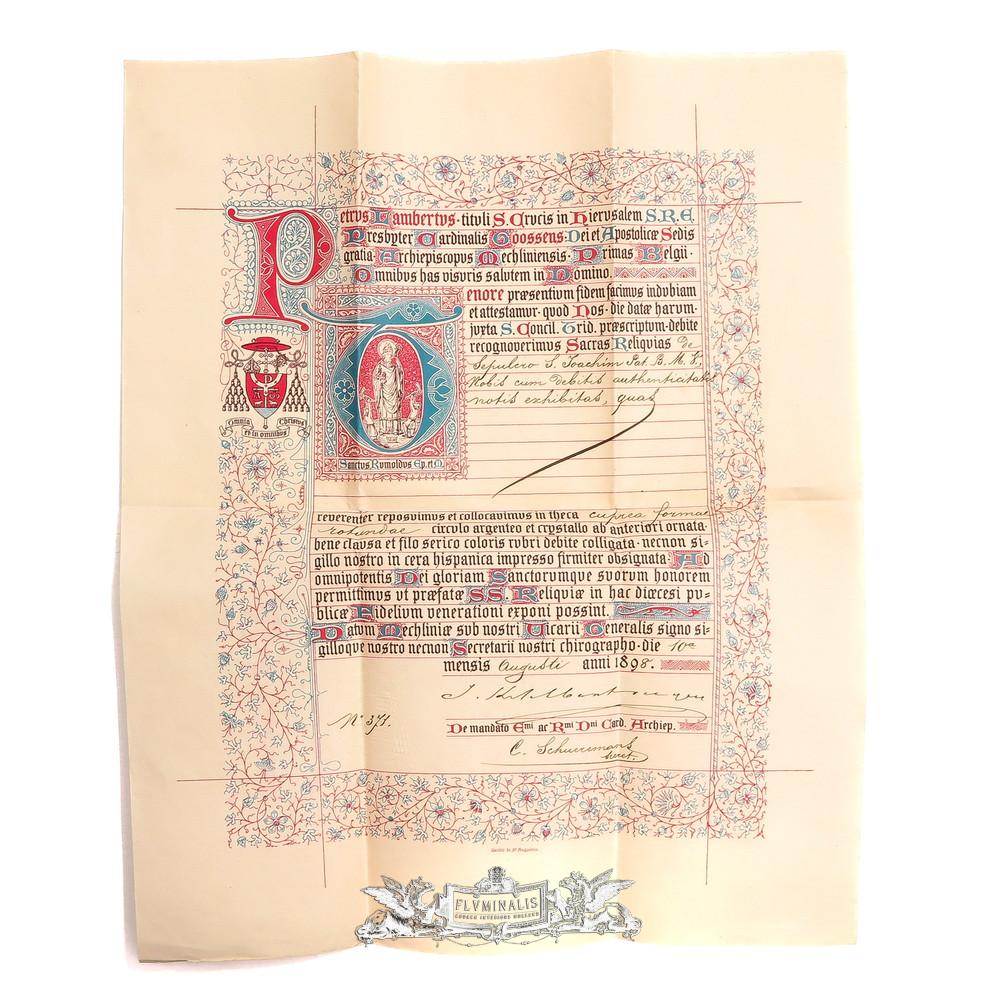 Petrvs Lambertvs · titvli S. Crvcis in Hiervsalem S.R.E.
Presbyter Cardinalis Goossens · Dei et Apostolicæ Sedis
gratia · Archiepiscopvs Mechliniensis · Primas Belgii ·
Omnibvs has visvris salvtem in Domino.
Tenore præsentivm fidem facimvs indvbiam
et attestamvr · qvod Nos · die datæ harvm ·
jvxta S. Concil. Trid. præscriptvm · debite
recognoverimvs Sacras Reliqvias De
Sepulcro S. Joachim Pat. B. M. V.
Nobis cum debitis authenticitatis
notis exhibitas, quas
Omnia Christvs
et in omnibvs
Sanctvs Rvmoldvs Ep. et M.
reverenter reposvimvs et collocavimvs in theca cuprea formae
rotundae circvlo argenteo et crystallo ab anteriori ornata ·
bene clavsa et filo serico coloris rvbri debite colligata · necnon si-
gillo nostro in cera hispanica impresso firmiter obsignata · Ad
omnipotentis Dei gloriam Sanctorvmqve svorvm honorem
permittimvs vt præfatæ SS. Reliqviæ in hac diœcesi pv-
blicæ Fidelivm venerationi exponi possint.
Datvm Mechliniæ svb nostri Vicarii Generalis signo si-
gilloqve nostro necnon Secretarii nostri chirographo · die 10a
mensis Augusti anni 1898.
N° 371.
De mandato Emi ac Rmi Dni Card. Archiep.
C. Schueremans
secret.
Société de St Augustin.
FLVMINALIS